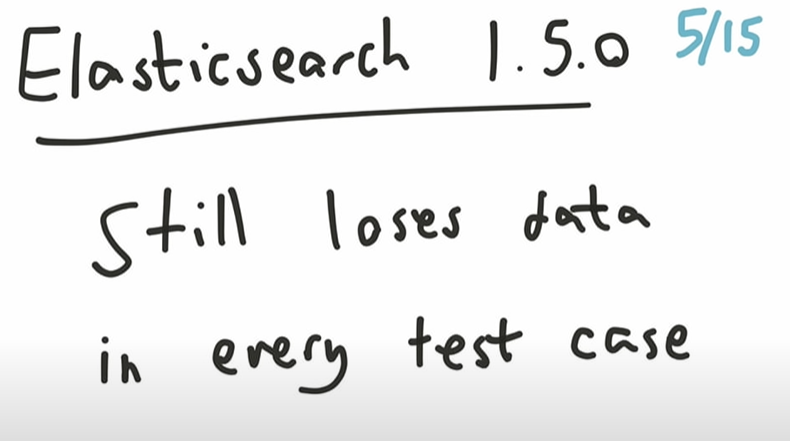 Elasticsearch 1.5.0 5/15
Still loses data
in every test case